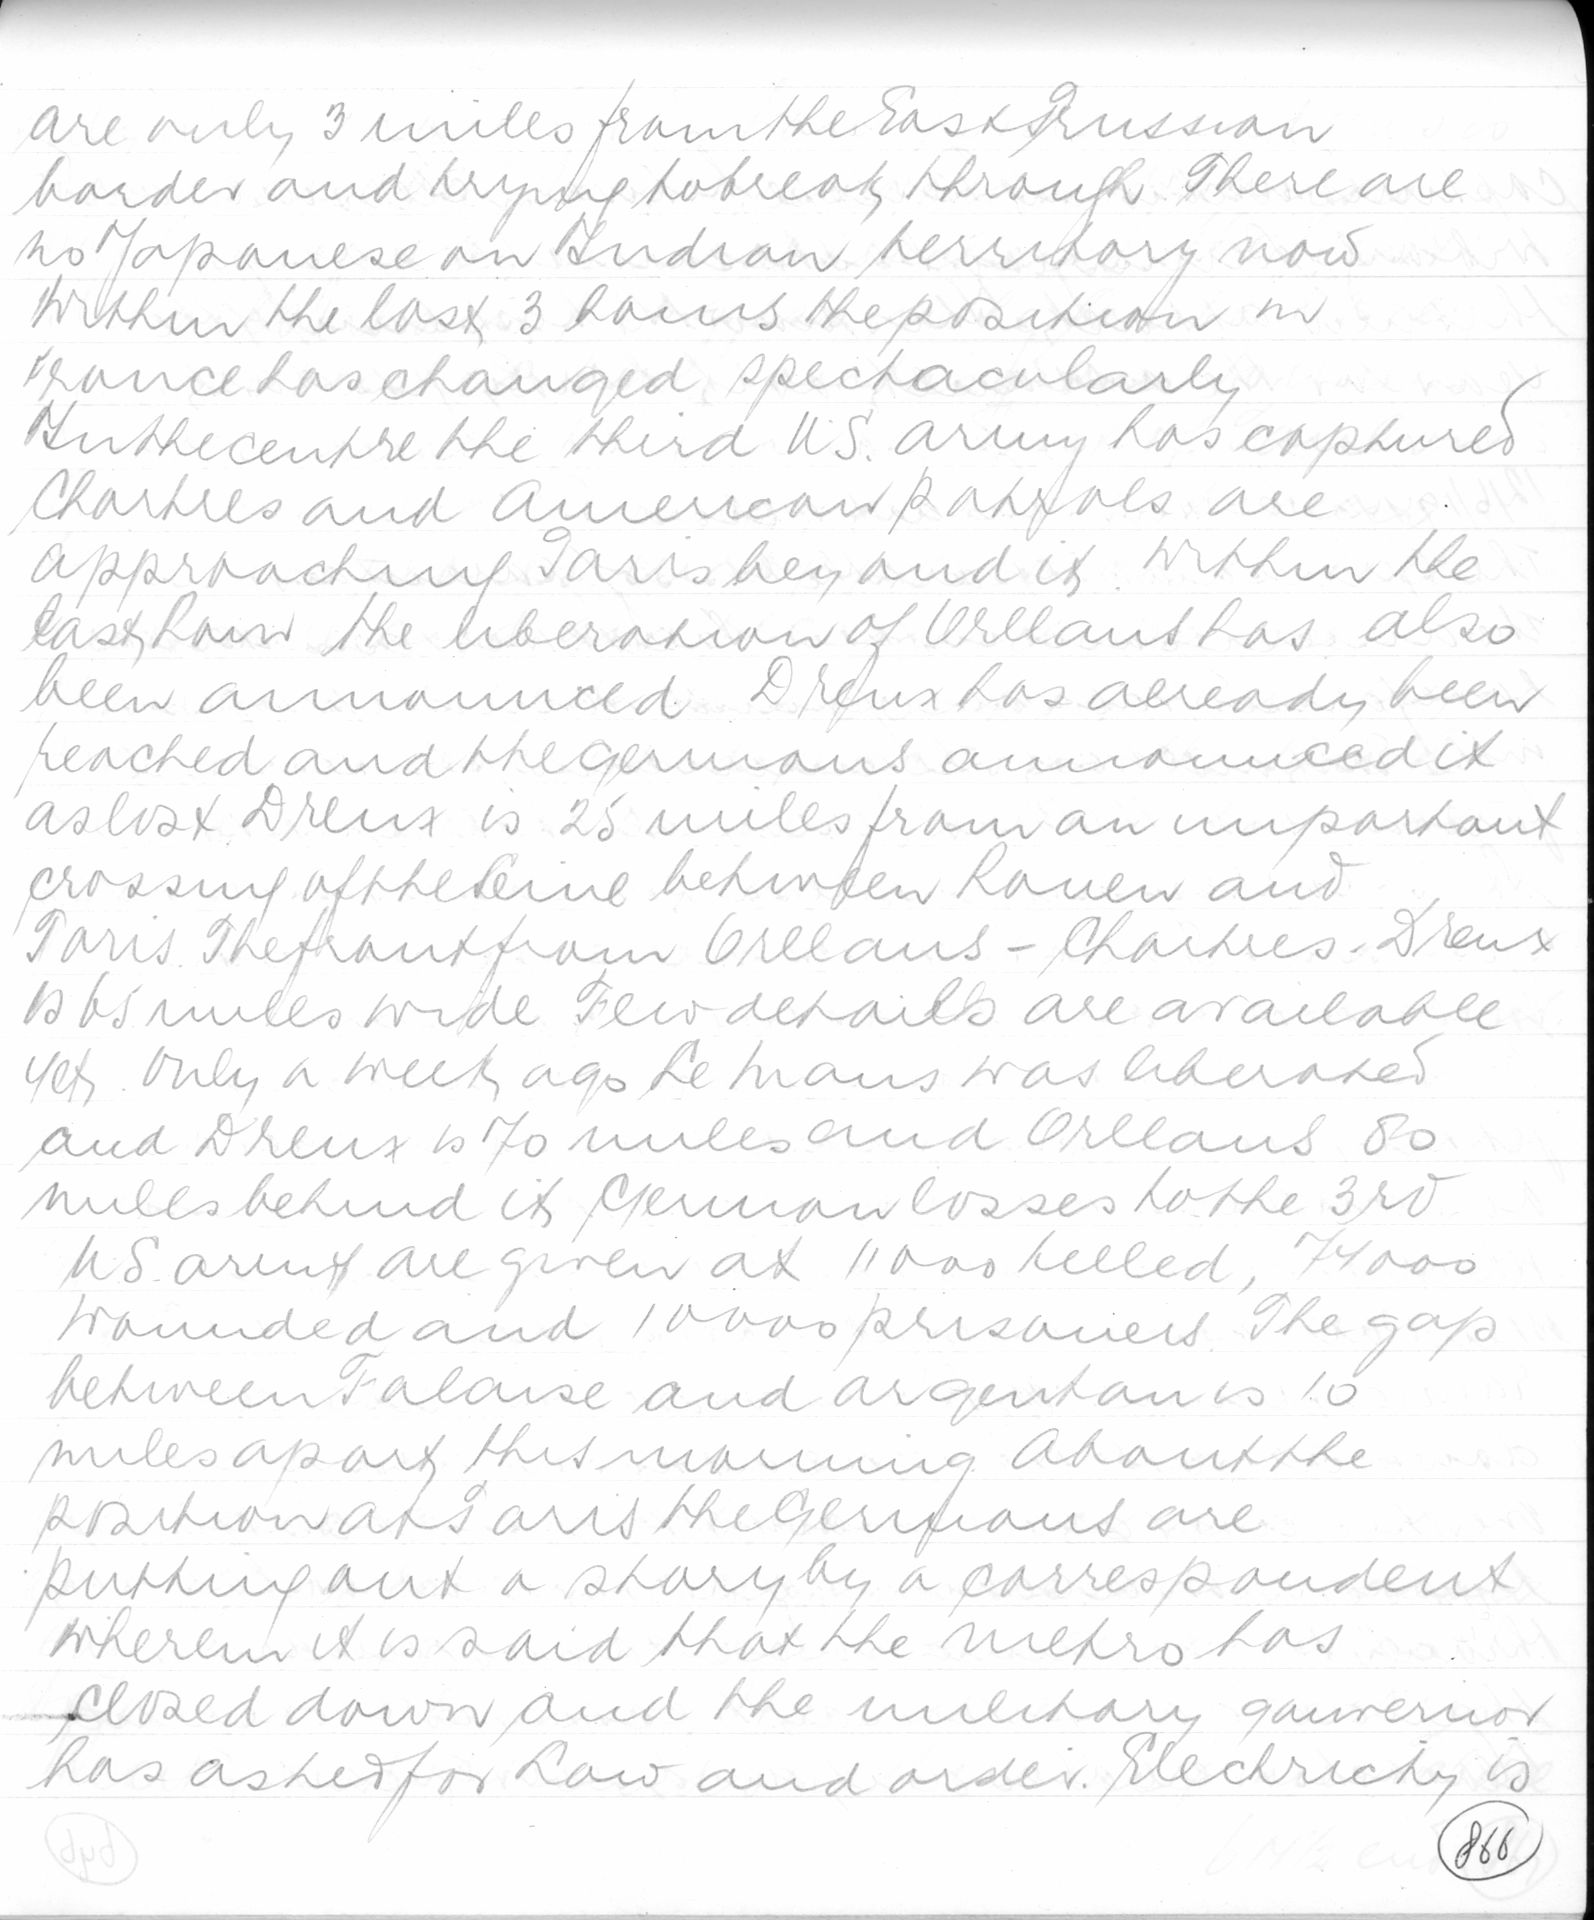 are only 3 miles from the East Prussian
border and trying to break through. There are
no Japanese on Indian territory now
Within the last 3 hours the position in
France has changed spectacularly
In the centre the third U.S. army has captured
Chartres and American patrols are
approaching Paris beyond it. Within the
last hour the liberation of Orllans has also
been announced. Dreux has already been
reached and the Germans announced it
as lost Dreux is 25 miles from an important
crossing of the Seine between Rouen and
Paris. The front from Orlleans - Chartres - Dreux
is 65 miles wide Few details are available
yet. Only a week ago Le Mans was liberated
and Dreux is 70 miles and Orlleans 80
miles behind it, German losses to the 3rd
US. army are given at 11000 killed,
wounded and 10000 prisoners. The gap
between Falaise and Argentan is 10
miles apart this morning. About the
position at Paris the Germans are
putting out a story by a correspondent
wherein it is said that the metro has
closed down and the military gouvernor
has asked for Law and order. Electricity is
866